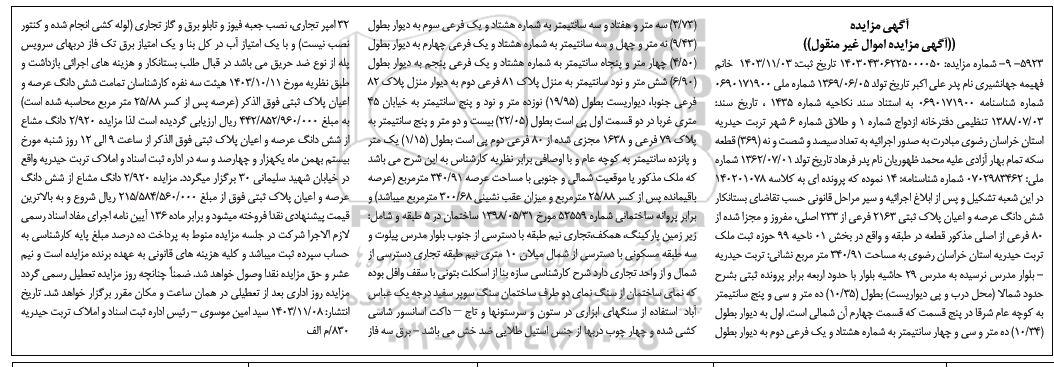 آگهی مزایده
((آگهی مزایده اموال غیر منقول))
۵۹۲۳- ۹- شماره مزایده: ۱۴۰۳۰۴۳۰۶۲۲۵۰۰۰۰۵۰ تاریخ ثبت: ۱۴۰۳/۱۱/۰۳ خانم
فهیمه جهانشیری نام پدر علی اکبر تاریخ تولد ۱۳۶۹/۰۶/۰۵ شماره ملی ۰۶۹۰۱۷۱۹۰۰
شماره شناسنامه ۰۶۹۰۱۷۱۹۰۰ به استناد سند نکاحیه شماره ۱۴۳۵ ، تاریخ سند:
۱۳۸۸/۰۷/۰۳ تنظیمی دفترخانه ازدواج شماره ۱ و طلاق شماره ۶ شهر تربت حیدریه
استان خراسان رضوی مبادرت به صدور اجرائیه به تعداد سیصد و شصت و نه (۳۶۹) قطعه
سکه تمام بهار آزادی علیه محمد ظهوریان نام پدر فرهاد تاریخ تولد ۱۳۶۲/۰۷/۰۱ شماره
ملی: ۰۷۰۲۹۸۳۴۶۲ شماره شناسنامه: ۱۴ نموده که پرونده ای به کلاسه ۱۴۰۲۰۱۰۷۸
در این شعبه تشکیل و پس از ابلاغ اجرائیه و سیر مراحل قانونی حسب تقاضای بستانکار
شش دانگ عرصه و اعیان پلاک ثبتی ۲۱۶۳ فرعی از ۲۳۳ اصلی، مفروز و مجزا شده از
۸۰ فرعی از اصلی مذکور قطعه در طبقه و واقع در بخش ۰۱ ناحیه ۹۹ حوزه ثبت ملک
تربت حیدریه استان خراسان رضوی به مساحت ۳۴۰/۹۱ متر مربع نشانی: تربت حیدریه
– بلوار مدرس نرسیده به مدرس ۲۹ حاشیه بلوار با حدود اربعه برابر پرونده ثبتی بشرح
حدود شمالا (محل درب و پی دیواریست) بطول (۱۰/۳۵) ده متر و سی و پنج سانتیمتر
به کوچه عام شرقا در پنج قسمت که قسمت چهارم آن شمالی است. اول به دیوار بطول
(۱۰/۳۴) ده متر و سی و چهار سانتیمتر به شماره هشتاد و یک فرعی دوم به دیوار بطول
(۳/۷۳) سه متر و هفتاد و سه سانتیمتر به شماره هشتاد و یک فرعی سوم به دیوار بطول
(۹/۴۳) نه متر و چهل و سه سانتیمتر به شماره هشتاد و یک فرعی چهارم به دیوار بطول
(۴/۵۰) چهار متر و پنجاه سانتیمتر به شماره هشتاد و یک فرعی پنجم به دیوار بطول
(۶/۹۰) شش متر و نود سانتیمتر به منزل پلاک ۸۱ فرعی دوم به دیوار منزل پلاک ۸۲
فرعی جنوبا، دیواریست بطول (۱۹/۹۵) نوزده متر و نود و پنج سانتیمتر به خیابان ۴۵
متری غربا در دو قسمت اول پی است بطول (۲۲/۰۵) بیست و دو متر و پنج سانتیمتر به
پلاک ۷۹ فرعی و ۱۶۳۸ مجزی شده از ۸۰ فرعی دوم پی است بطول (۱/۱۵) یک متر
و پانزده سانتیمتر به کوچه عام و با اوصافی برابر نظریه کارشناس به این شرح می باشد
که ملک مذکور یا موقعیت شمالی و جنوبی با مساحت عرصه ۳۴۰/۹۱ مترمربع (عرصه
باقیمانده پس از کسر ۲۵/۸۸ مترمربع و میزان عقب نشینی ۳۰۰/۶۸ مترمربع میباشد) و
برابر پروانه ساختمانی شماره ۵۲۵۵۹ مورخ ۱۳۹۸/۰۵/۳۱ ساختمان در ۵ طبقه و شامل:
زیر زمین پارکینگ، همکف،تجاری نیم طبقه با دسترسی از جنوب بلوار مدرس پیلوت و
سه طبقه مسکونی با دسترسی از شمال میلان ۱۰ متری نیم طبقه تجاری دسترسی از
شمال و از واحد تجاری دارد شرح کارشناسی سازه بنا از اسکلت بتونی با سقف وافل بوده
که نمای ساختمان از سنگ نمای دو طرف ساختمان سنگ سوپر سفید درجه یک عباس
آباد استفاده از سنگهای ابزاری در ستون و سرستونها و تاج – داکت اسانسور شاسی
کشی شده و چهار چوب دربها از جنس استیل طلایی ضد خش می باشد – برق سه فاز
۳۲ آمپر تجاری، نصب جعبه فیوز و تابلو برق و گاز تجاری (لوله کشی انجام شده و کنتور
نصب نیست) و با یک امتیاز آب در کل بنا و یک امتیاز برق تک فاز دربهای سرویس
پله از نوع ضد حریق می باشد در قبال طلب بستانکار و هزینه های اجرائی بازداشت و
طبق نظریه مورخ ۱۴۰۳/۱۰/۱۱ هیئت سه نفره کارشناسان تمامت شش دانگ عرصه و
اعیان پلاک ثبتی فوق الذکر (عرصه پس از کسر ۲۵/۸۸ متر مربع محاسبه شده است)
به مبلغ ۴۴۲/۸۵۲/۹۶۰/۰۰۰ ریال ارزیابی گردیده است لذا مزایده ۲/۹۲۰ دانگ مشاع
از شش دانگ عرصه و اعیان پلاک ثبتی فوق الذکر از ساعت ۹ الی ۱۲ روز شنبه مورخ
بیستم بهمن ماه یکهزار و چهارصد و سه در اداره ثبت اسناد و املاک تربت حیدریه واقع
در خیابان شهید سلیمانی ۳۰ برگزار میگردد. مزایده ۲/۹۲۰ دانگ مشاع از شش دانگ
عرصه و اعیان پلاک ثبتی فوق از مبلغ ۲۱۵/۵۸۴/۵۶۰/۰۰۰ ریال شروع و به بالاترین
قیمت پیشنهادی نقدا فروخته میشود و برابر ماده ۱۳۶ آیین نامه اجرای مفاد اسناد رسمی
لازم الاجرا شرکت در جلسه مزایده منوط به پرداخت ده درصد مبلغ پایه کارشناسی به
حساب سپرده ثبت میباشد و کلیه هزینه های قانونی به عهده برنده مزایده است و نیم
عشر و حق مزایده نقدا وصول خواهد شد. ضمناً چنانچه روز مزایده تعطیل رسمی گردد
مزایده روز اداری بعد از تعطیلی در همان ساعت و مکان مقرر برگزار خواهد شد. تاریخ
انتشار: ۱۴۰۳/۱۱/۰۸ سید امین موسوی – رئیس اداره ثبت اسناد و املاک تربت حیدریه
۸۳۰/م الف